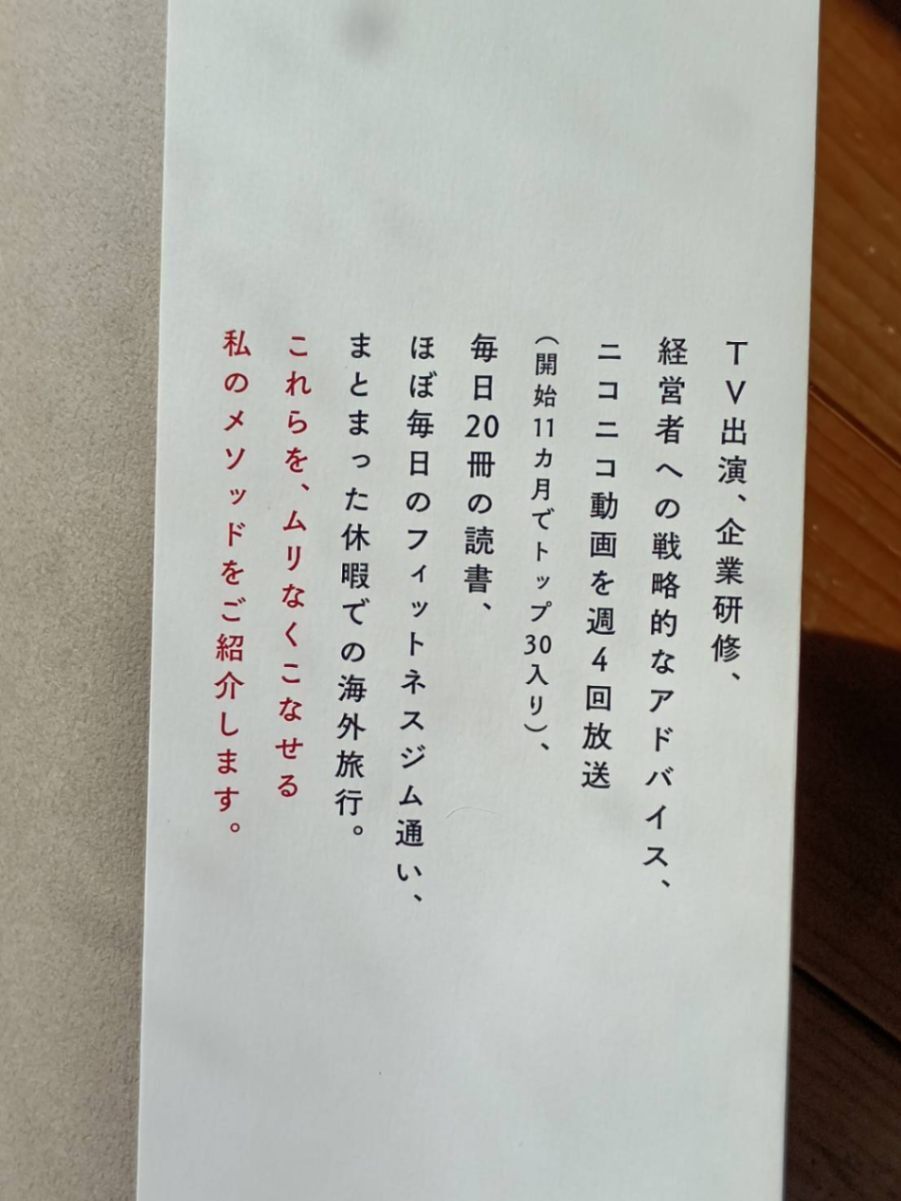 TV出演、企業研修、
経営者への戦略的なアドバイス、
ニコニコ動画を週4回放送
(開始11カ月でトップ30入り)、
毎日20冊の読書、
ほぼ毎日のフィットネスジム通い、
まとまった休暇での海外旅行。
これらを、ムリなくこなせる
私のメソッドをご紹介します。